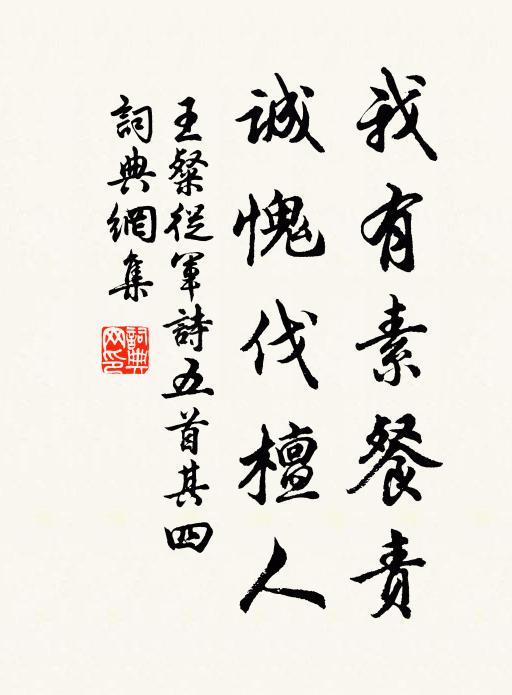 我有素餐責
誠愧伐檀人
王粲從軍詩五首其四
詞典網集
詞典網印